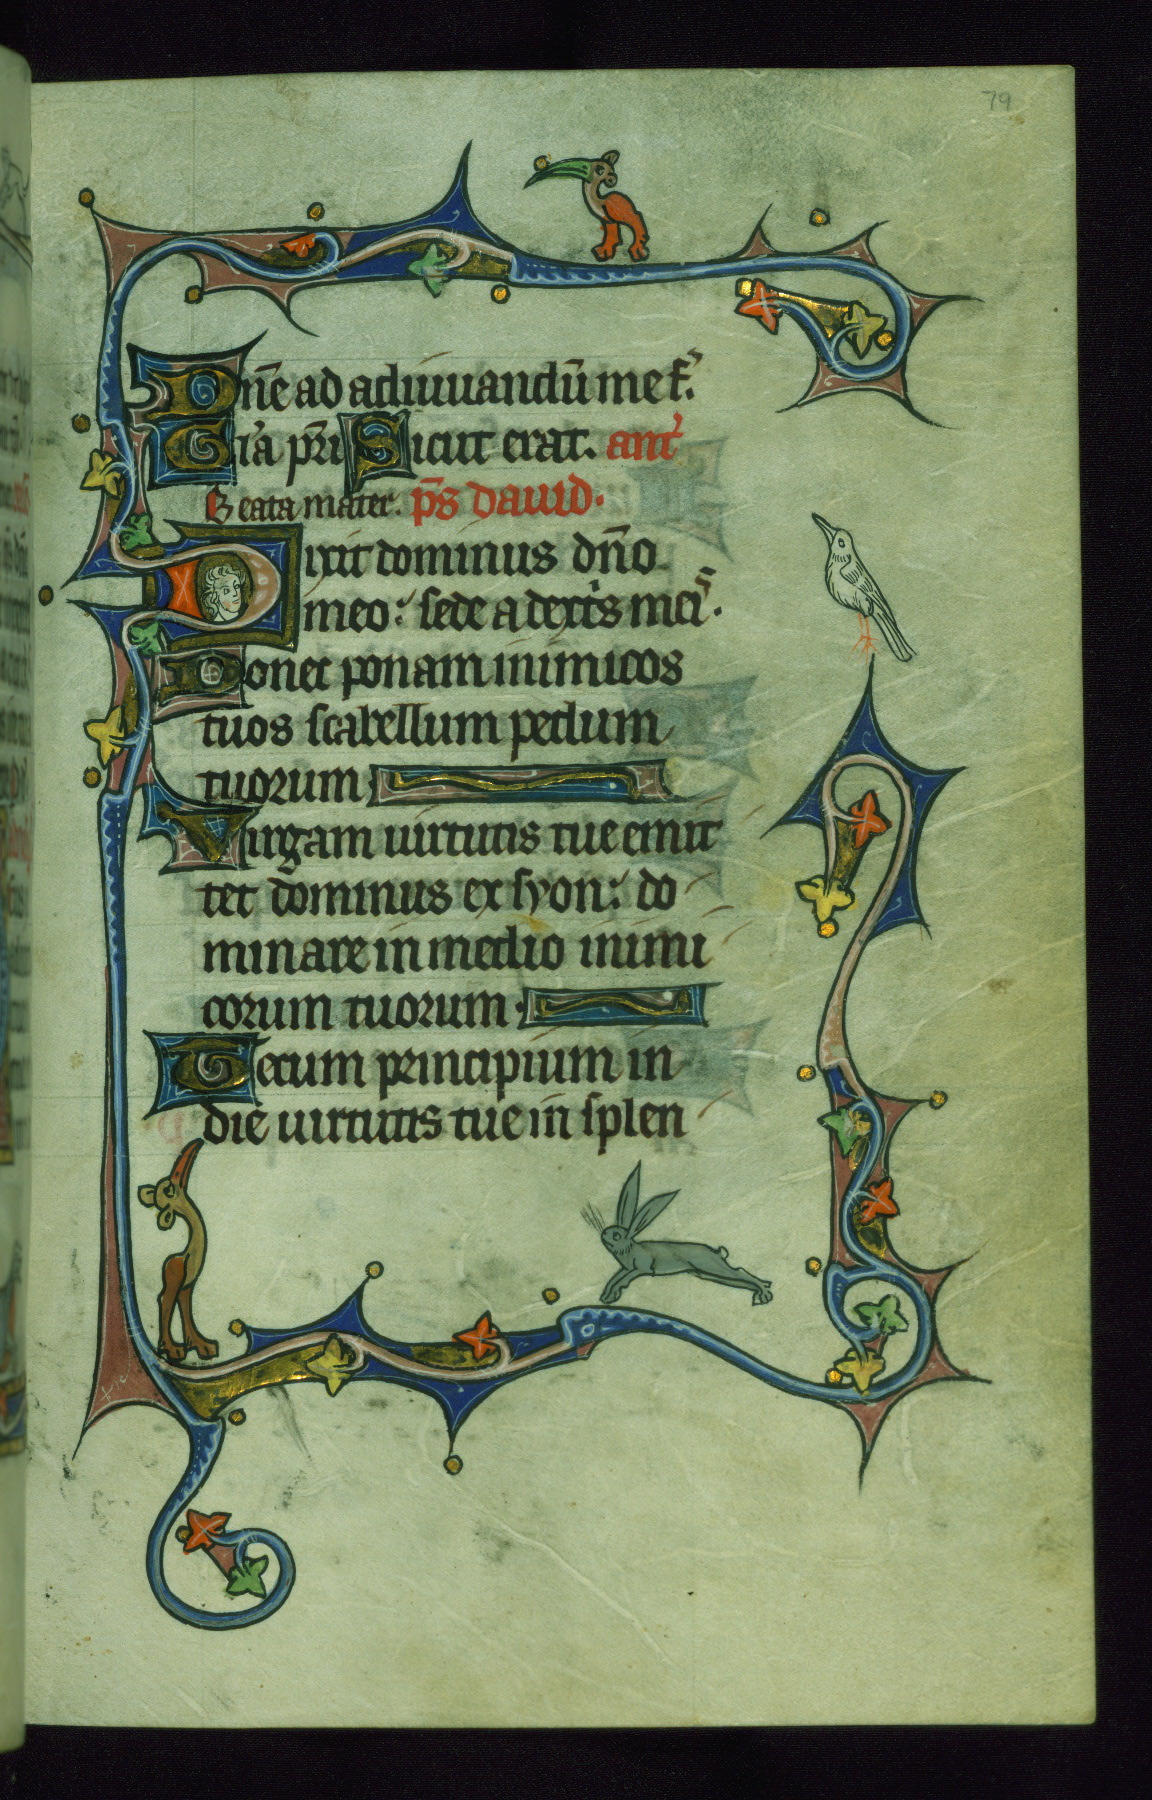 79
Dn̄e ad adiuuandū me f.
Gl'a pr̄i Sicut erat. ant'
Beata mater. ps̄ dauid.
Dixit dominus dn̄o
meo: sede a dextris mei.
Donec ponam inimicos
tuos scabellum pedum
tuorum
Virgam uirtutis tue emit
tet dominus ex syon: do
minare in medio inimi
corum tuorum.
Tecum principium in
die uirtutis tue in splen